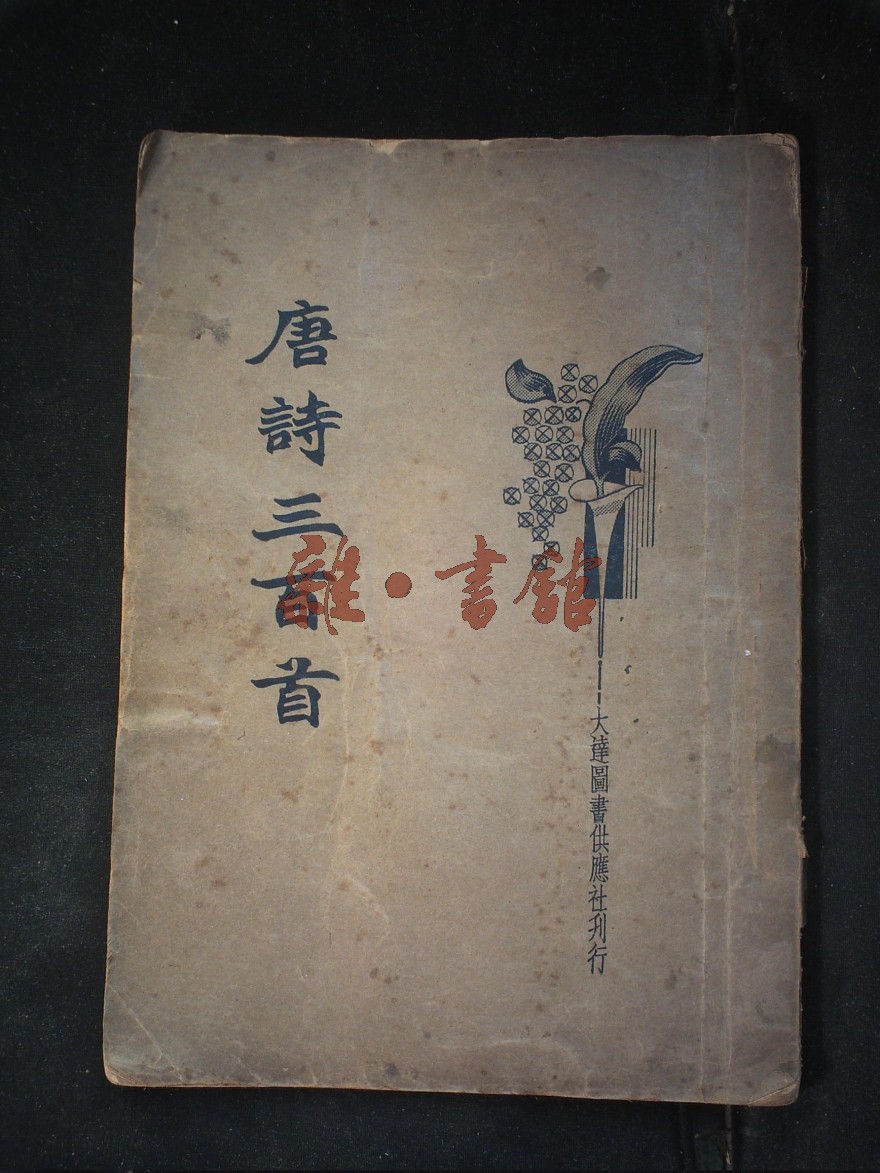 唐詩三百首
大達圖書供應社刋行
雜·書館